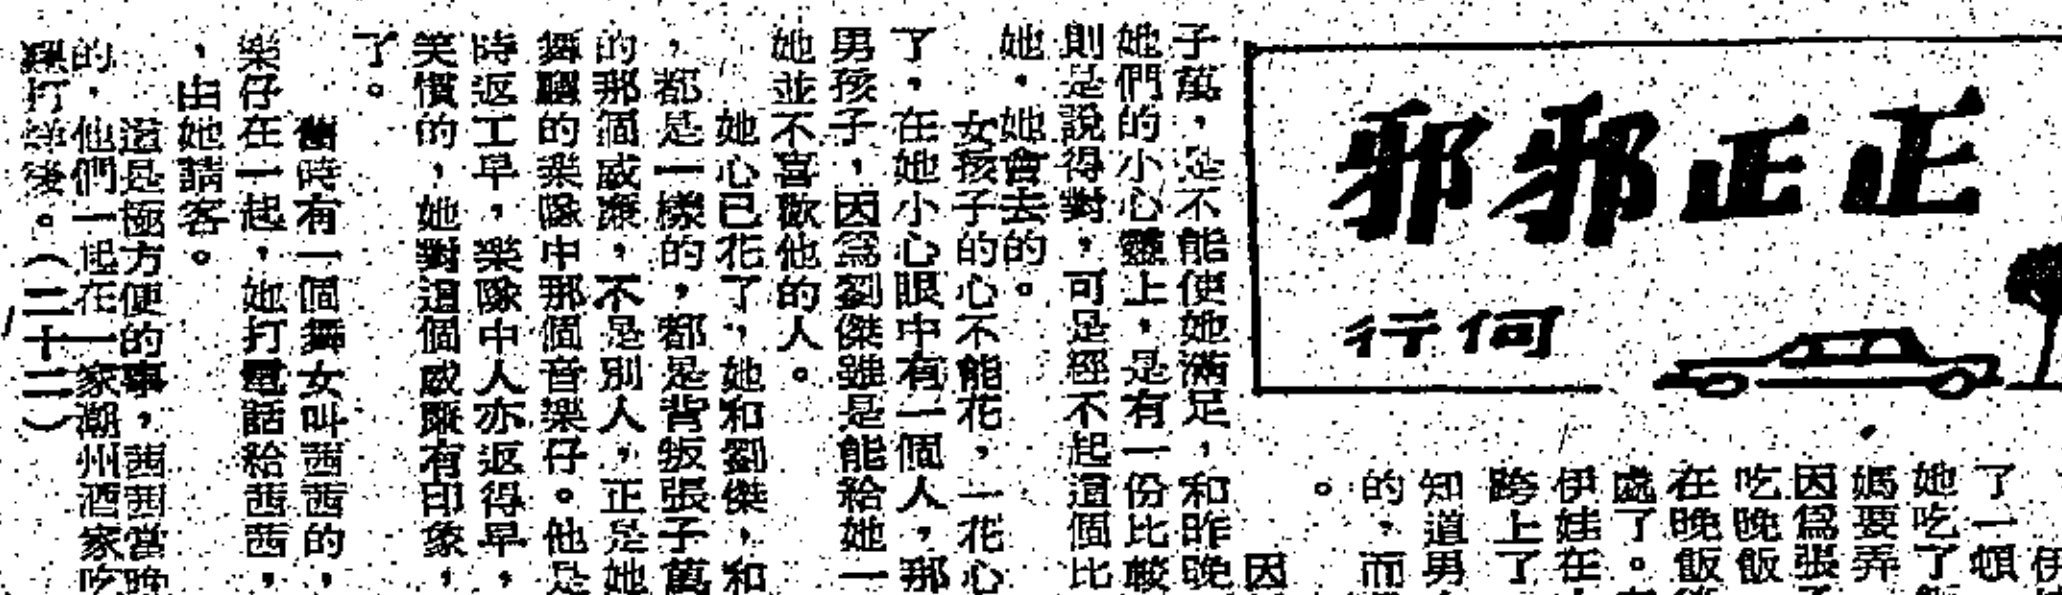 正正邪邪
何行
伊
了一頓
她吃了
媽要弄
因爲張子
吃晚飯
在晚飯後
處了。
伊娃在
跨上了
知道男
的，而
。
因
子萬，是不能使她滿足，和昨晚
她們的小心靈上，是有一份比較
則是說得對，可是經不起這個比
她，她會去的。
女孩子的心不能花，一花心
了，在她小心眼中有一個人，那
男孩子，因爲劉傑雖是能給她一
她並不喜歡他的人。
她心已花了，她和劉傑，和
，都是一樣的，都是背叛張子萬
的那個威廉，不是別人，正是她
舞廳的樂隊中那個音樂仔。他是
時返工早，樂隊中人亦返得早，
笑慣的，她對這個威廉有印象，
了。
當時有一個舞女叫茜茜的，
樂仔在一起，她打電話給茜茜，
，由她請客。
這是極方便的事，茜茜當晚
的，他們一起在一家潮州酒家吃
打烊後。（二十二）